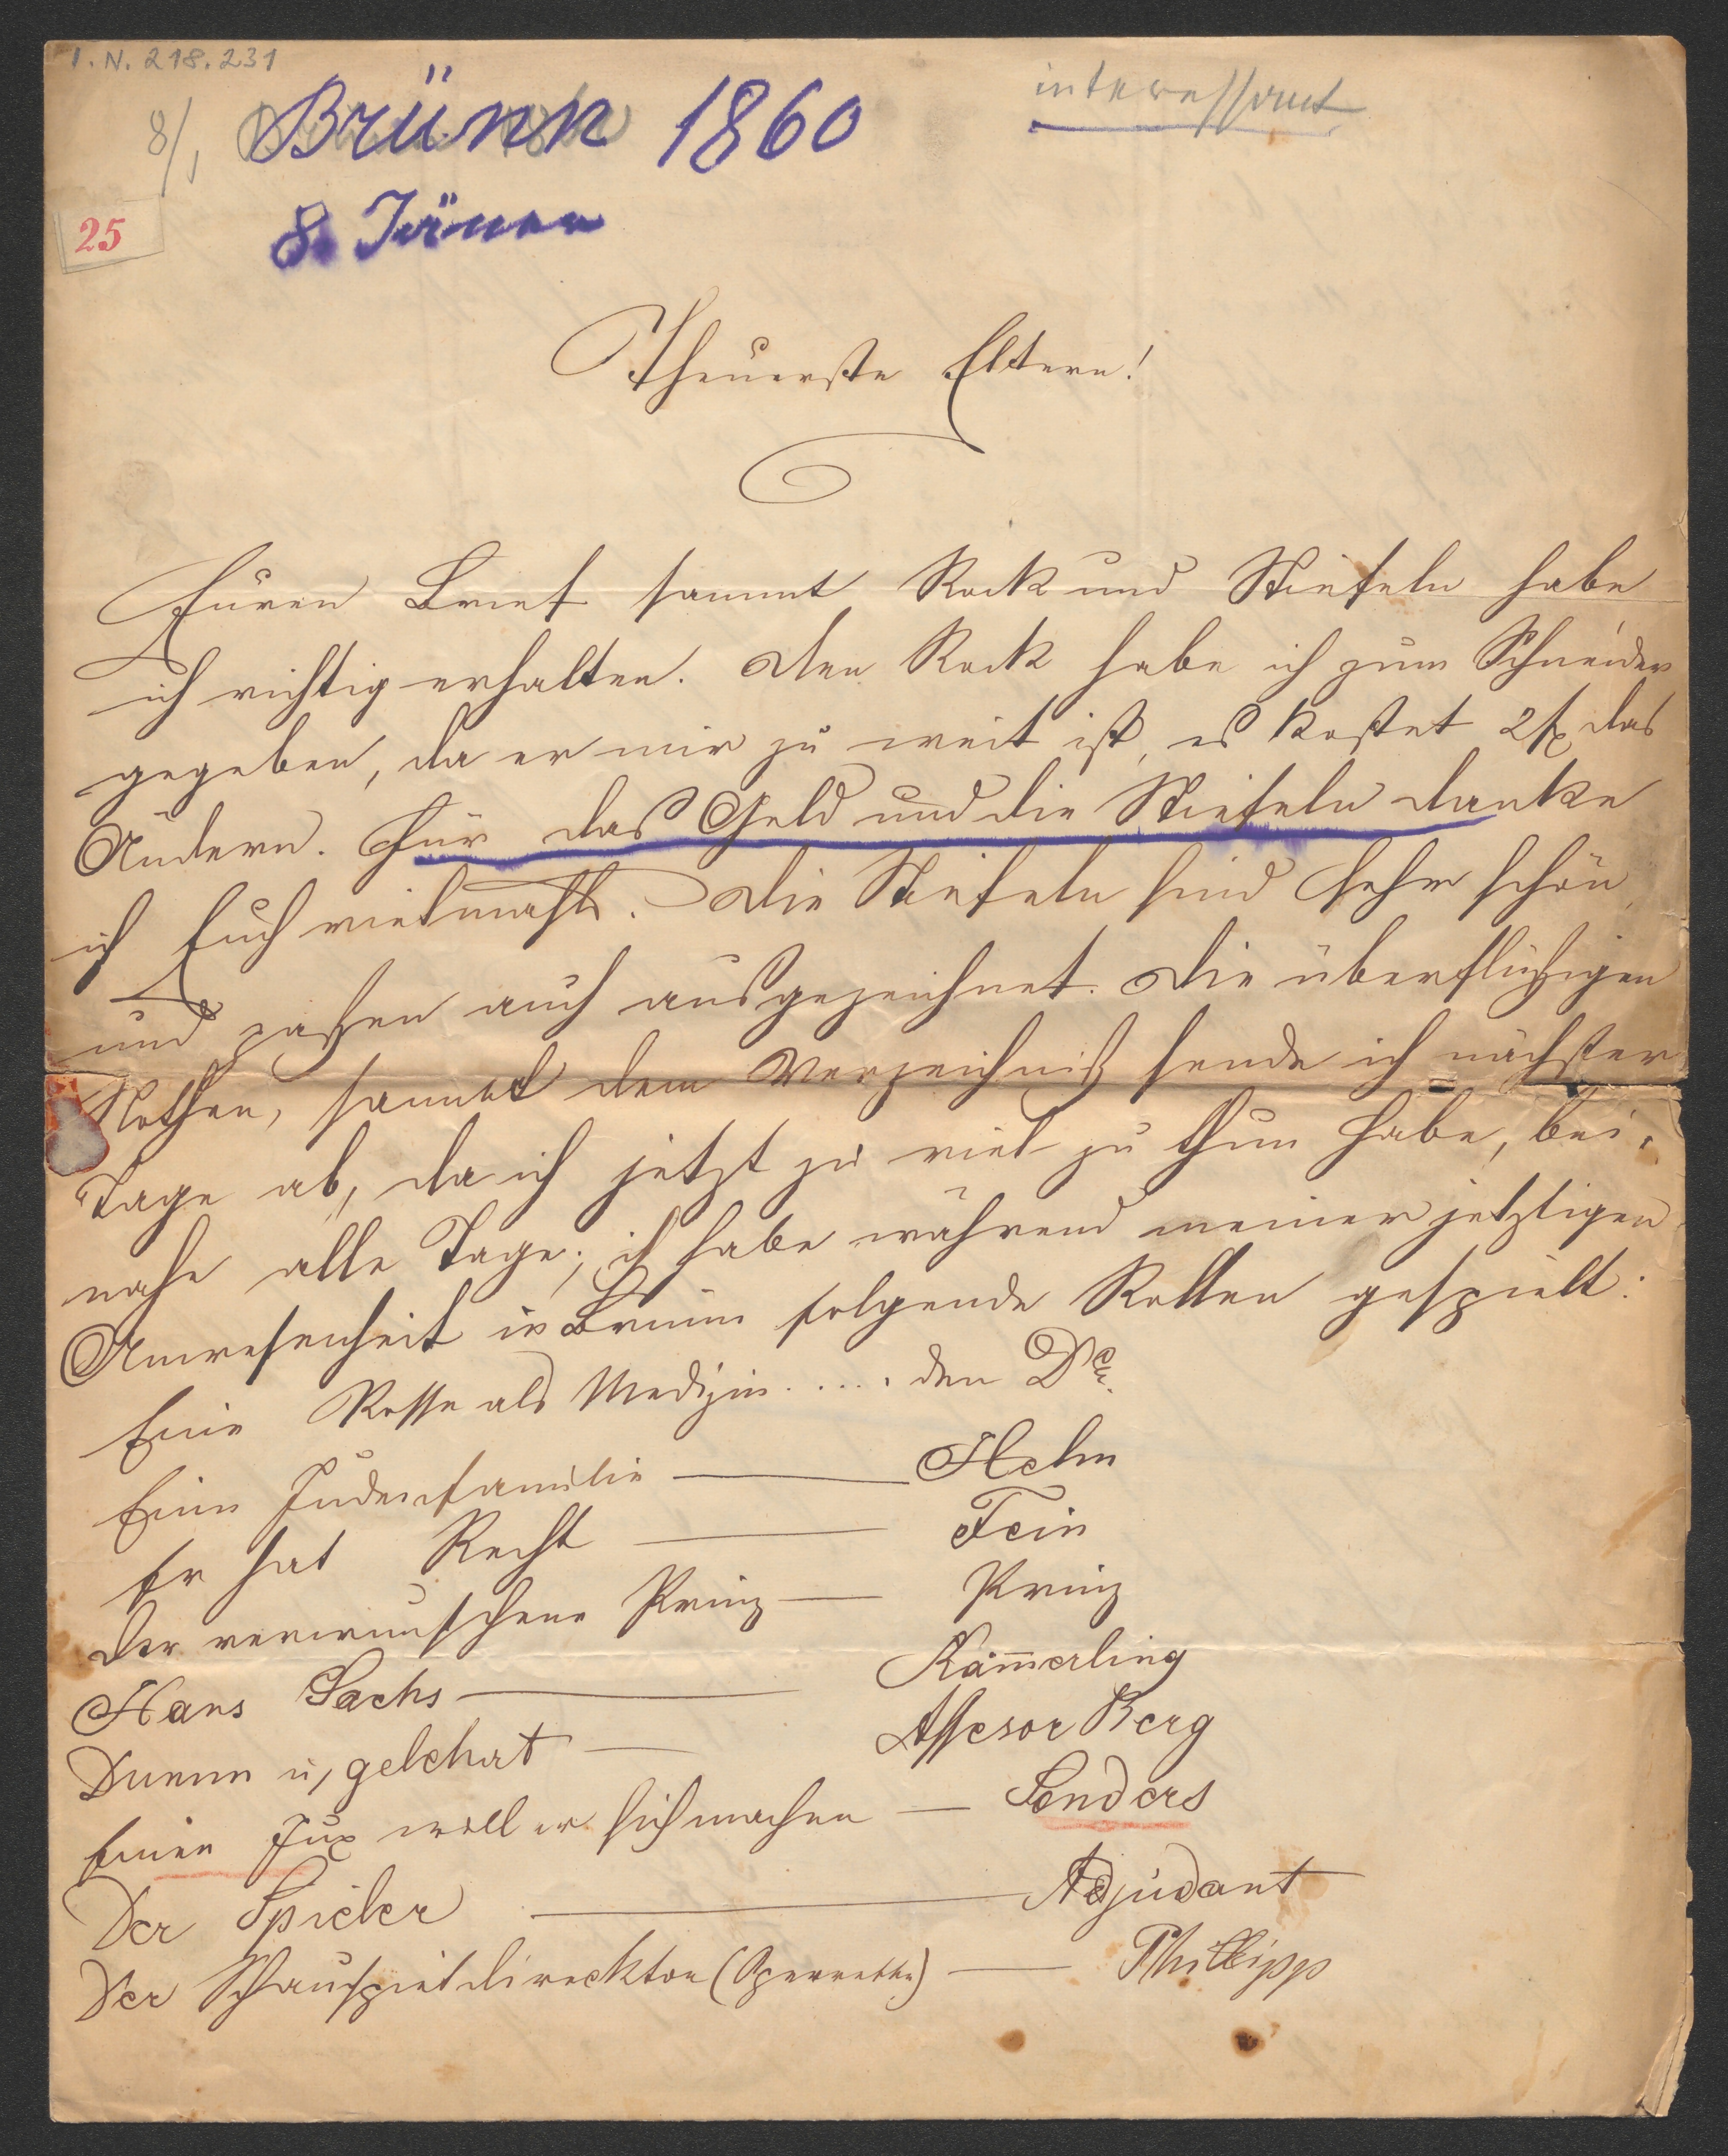 I. N. 218.231
8/1 Brünn 1860
interessant
8. Jänner
25
Theuerste Eltern!
Euren Brief sammt Rock und Stiefeln habe
ich richtig erhalten. Den Rock habe ich zum Schneider
gegeben, da er mir zu weit ist, es kostet 2 f das
Ändern. Für das Geld und die Stiefeln danke
ich Euch vielmahls. Die Stiefeln sind sehr schön
und paßen auch ausgezeichnet. Die überflüßigen
Nothen, sammt dem Verzeichniß sende ich nächster
Tage ab, da ich jetzt zu viel zu thun habe, bei-
nahe alle Tage; ich habe während meiner jetztigen
Anwesenheit in Brünn folgende Rollen gespielt:
Eine Posse als Medizin ..... den Dr.
Eine Judenfamilie — Helm
Er hat Recht — Fein
Der verwunschene Prinz — Prinz
Hans Sachs — Käm̄erling
Dumm u, gelehrt — Assesor Berg
Einen Jux will er sich machen — Sonders
Der Spieler — Adjudant
Der Schauspieldirecktor (Operrette) — Phillipp